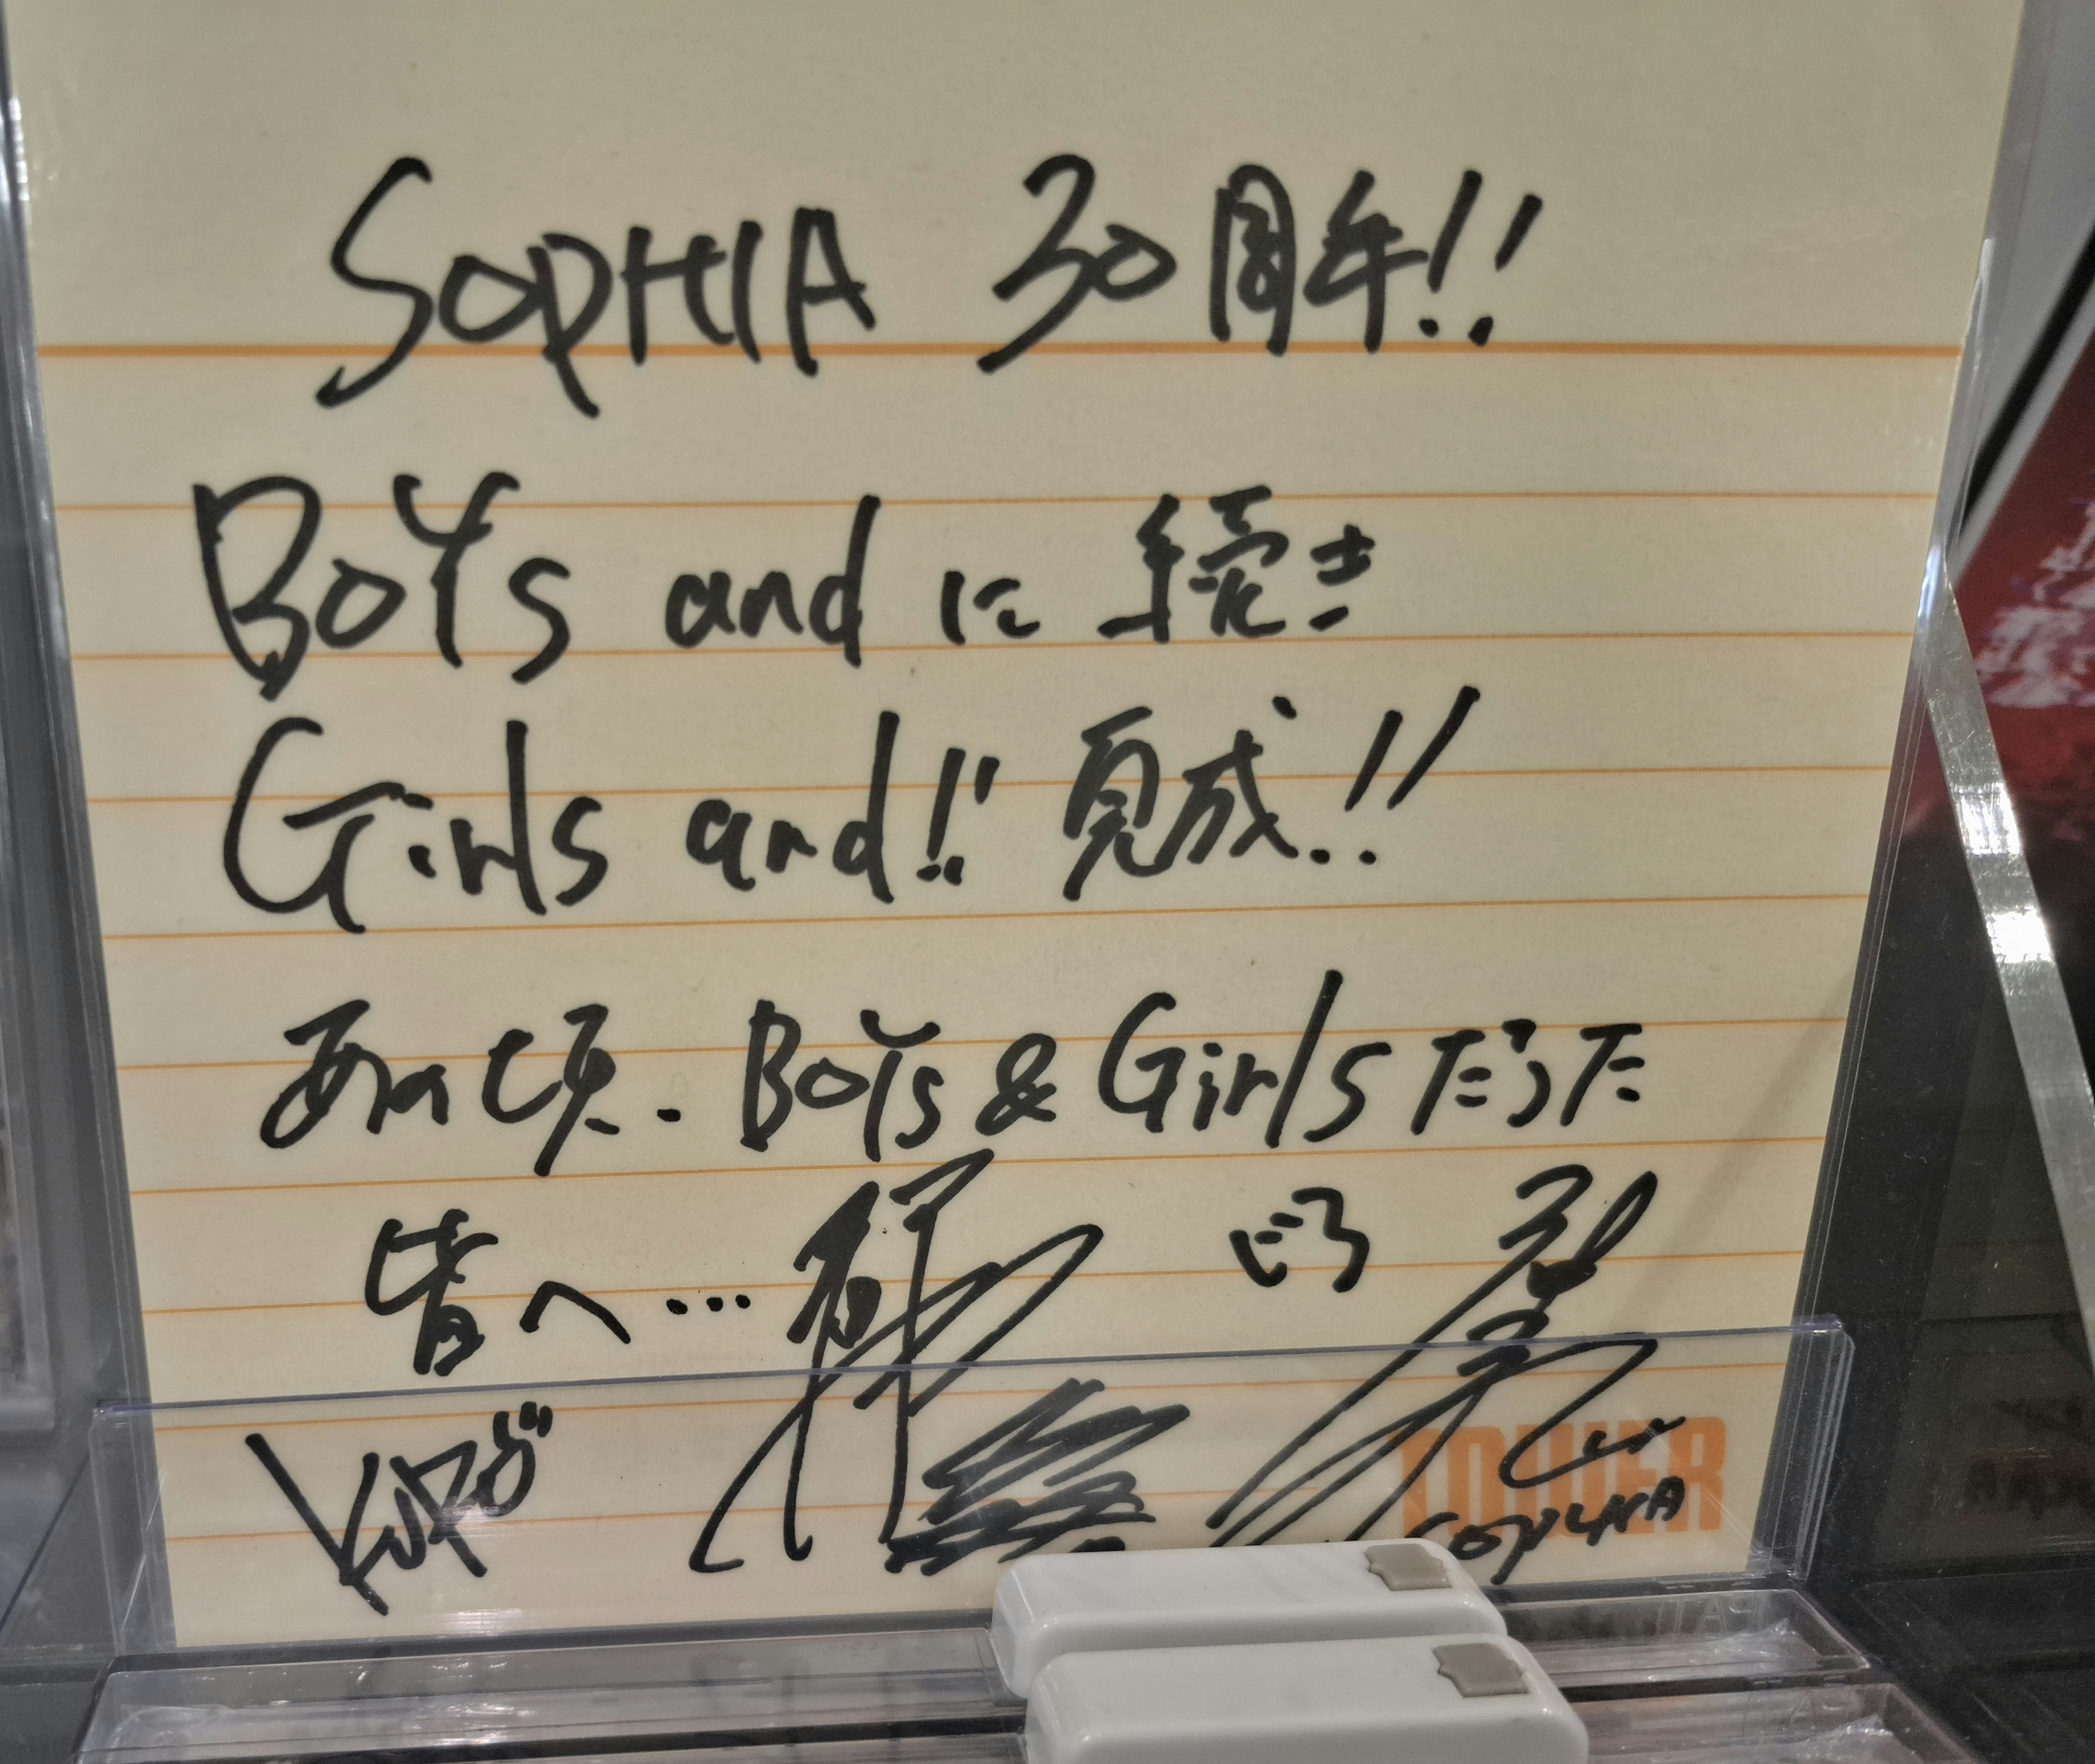 SOPHIA 30周年!!
BOYs and に続き
Girls and!! 完成!!
あの頃. BOYs & Girlsだった
皆へ…
TOWER
SOPHIA